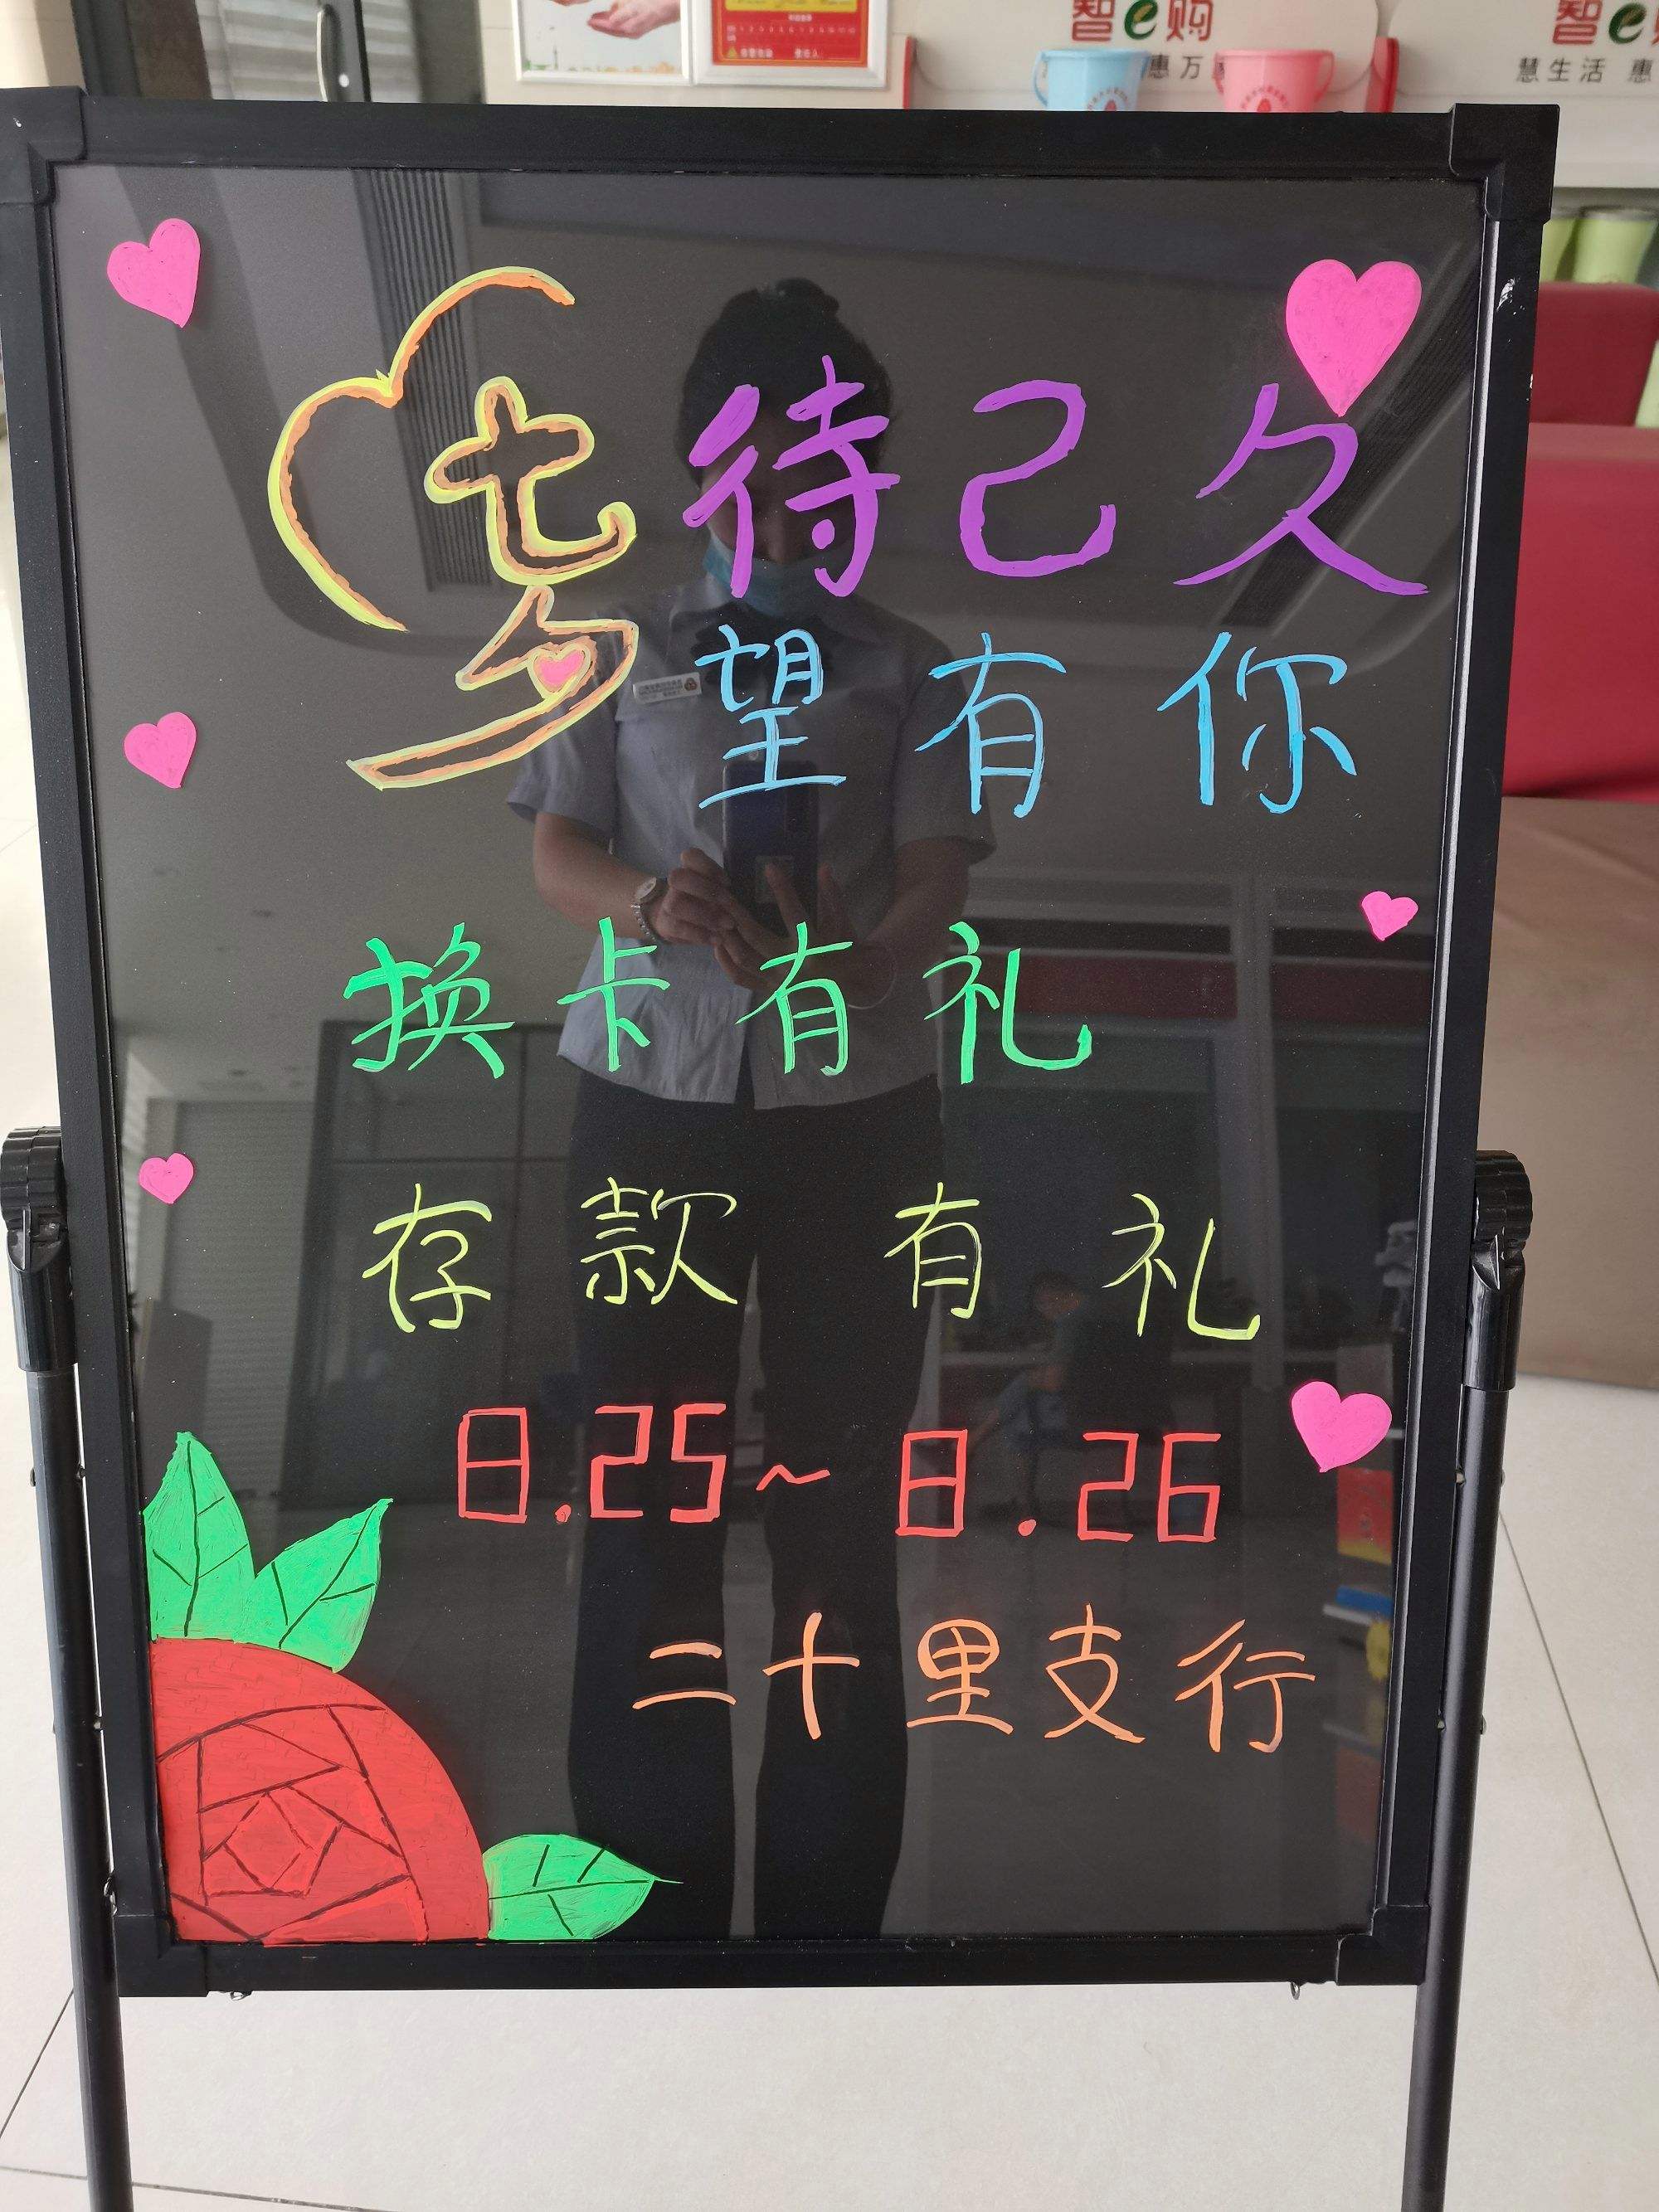 智e购
智e购
惠万
慧生活 惠
七夕
待己久
望有你
换卡有礼
存款有礼
8.25~8.26
二十里支行